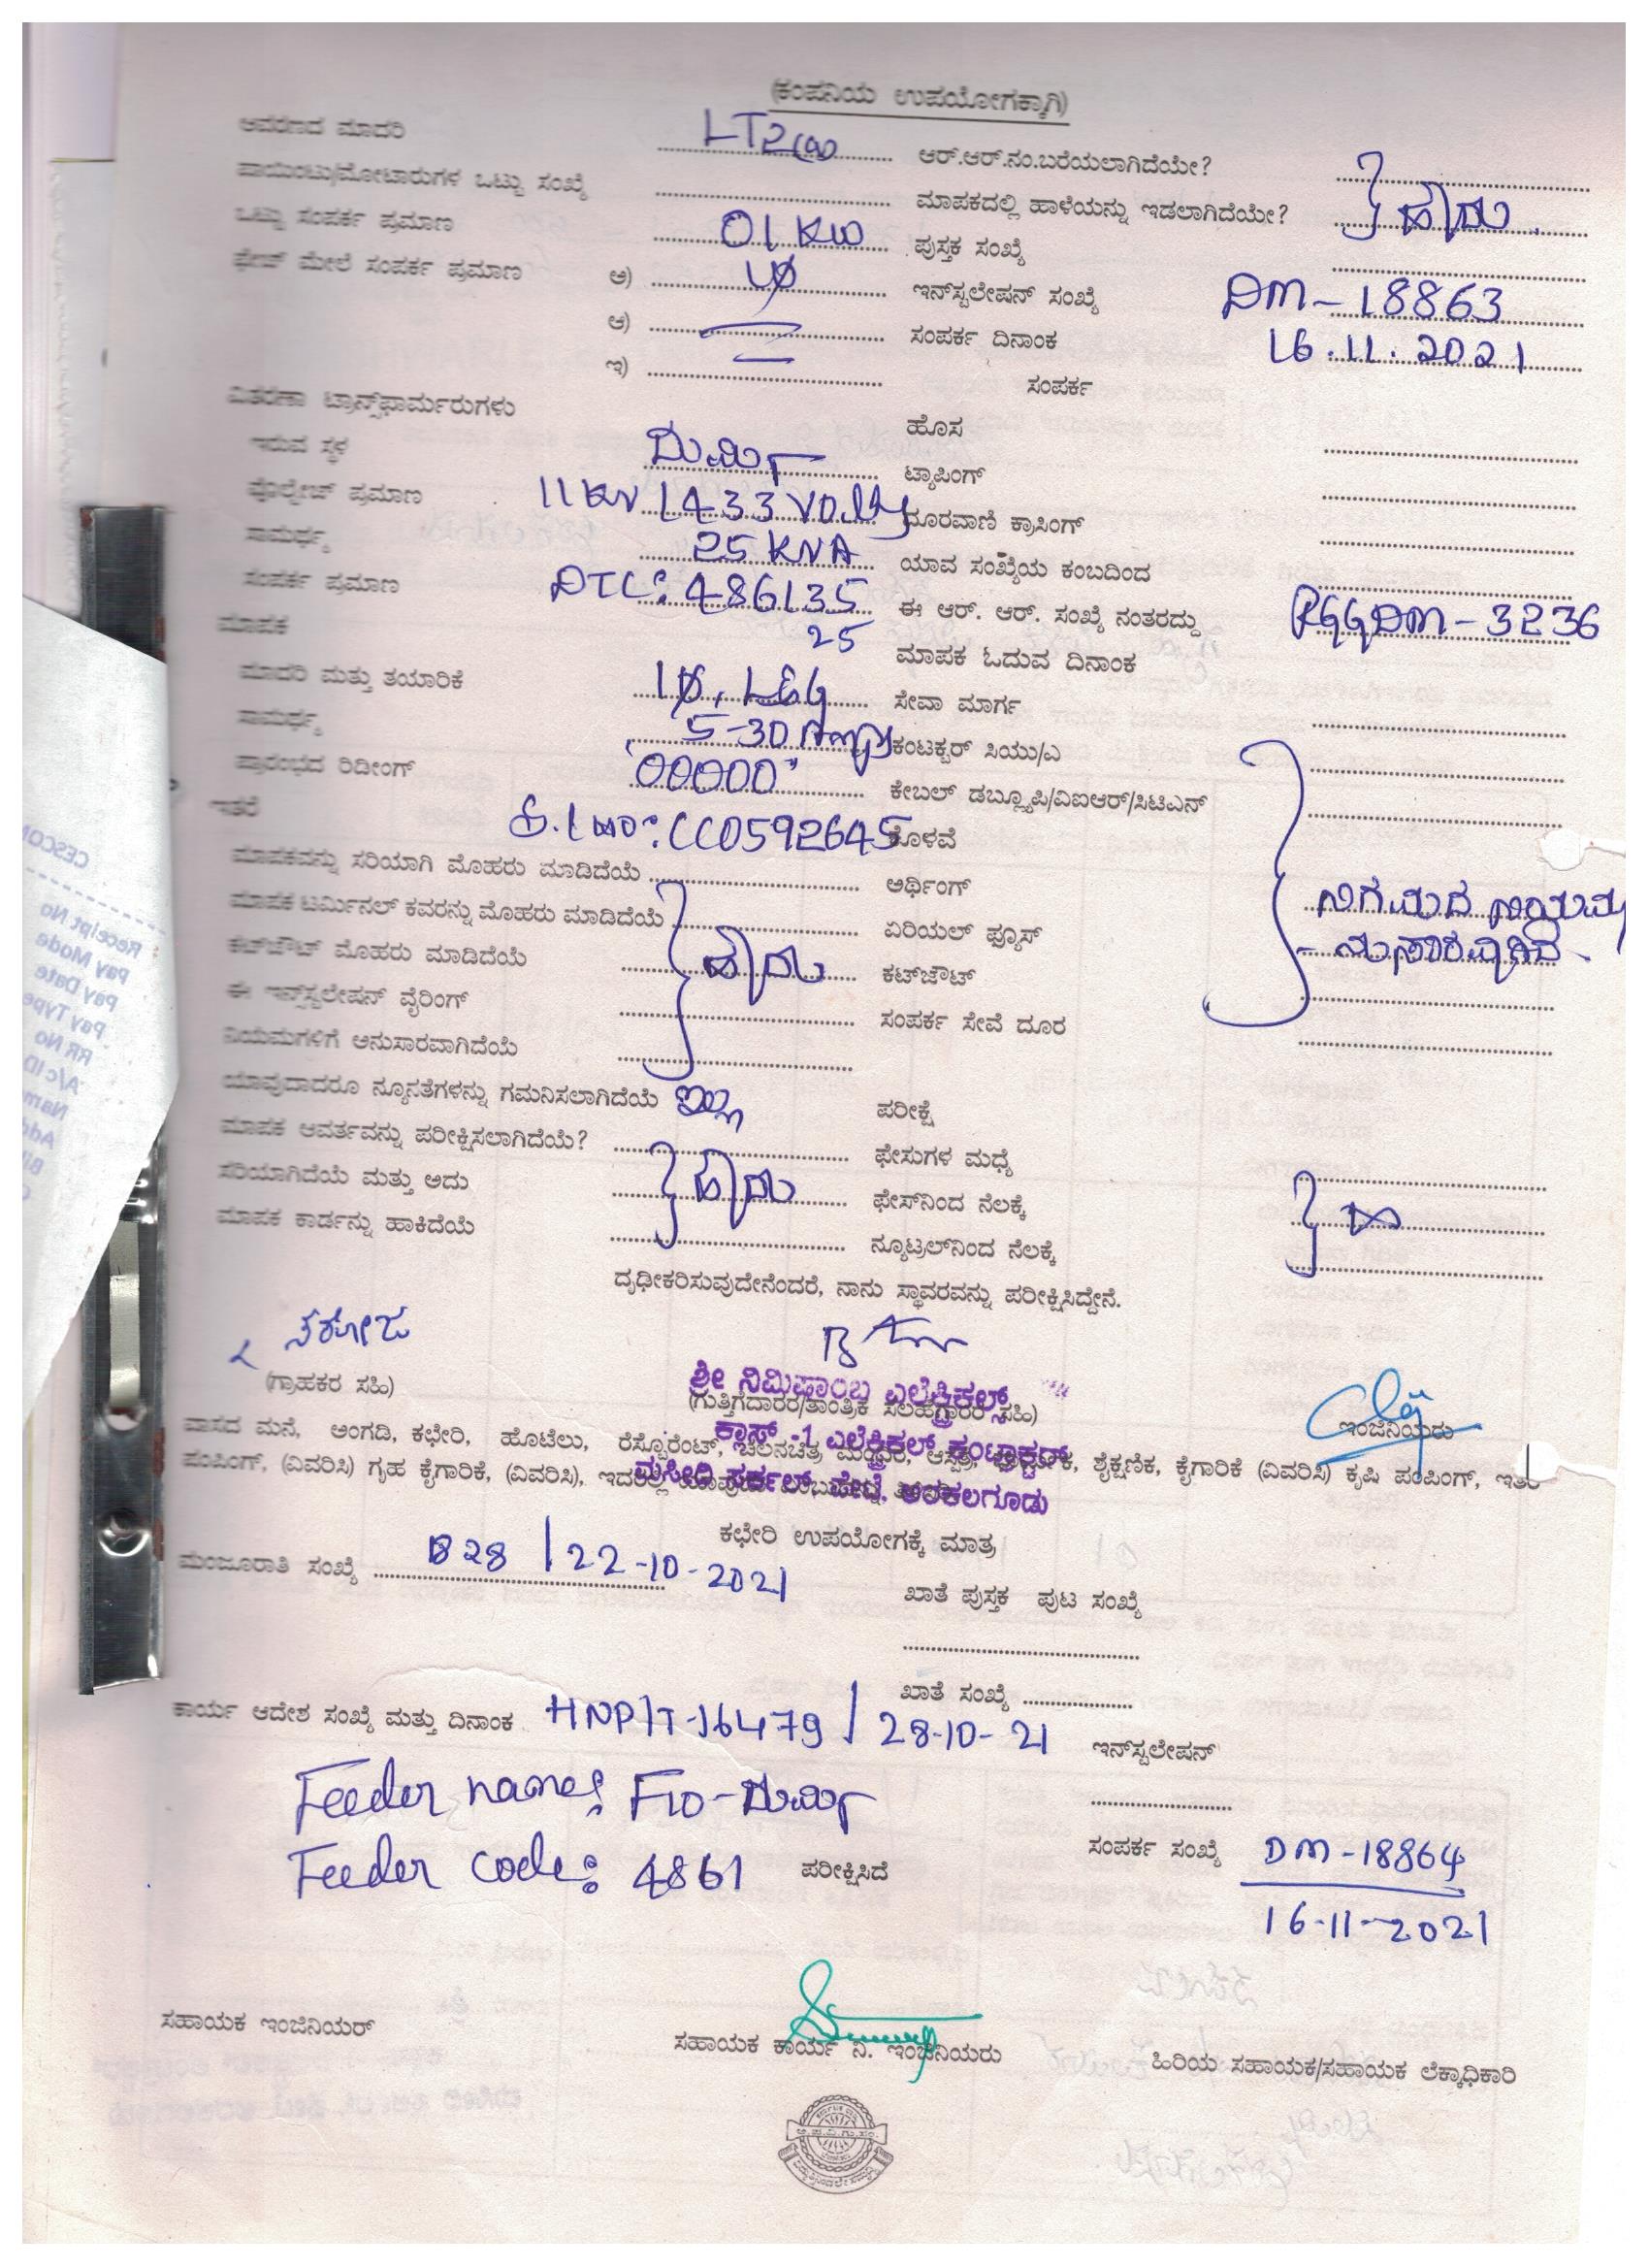 (ಕಂಪನಿಯ ಉಪಯೋಗಕ್ಕಾಗಿ)
ಆವರಣದ ಮಾದರಿ LT2(a) ಆರ್.ಆರ್.ನಂ.ಬರೆಯಲಾಗಿದೆಯೇ?
ಪಾಯಿಂಟು/ಮೋಟಾರುಗಳ ಒಟ್ಟು ಸಂಖ್ಯೆ ಮಾಪಕದಲ್ಲಿ ಹಾಳೆಯನ್ನು ಇಡಲಾಗಿದೆಯೇ? } ಹೌದು.
ಒಟ್ಟು ಸಂಪರ್ಕ ಪ್ರಮಾಣ 01 KW ಪುಸ್ತಕ ಸಂಖ್ಯೆ
ಫೇಜ್ ಮೇಲೆ ಸಂಪರ್ಕ ಪ್ರಮಾಣ ಅ) 1Ø ಇನ್‌ಸ್ಟಲೇಷನ್ ಸಂಖ್ಯೆ DM-18863
ಆ) ಸಂಪರ್ಕ ದಿನಾಂಕ 16.11.2021
ಇ) ಸಂಪರ್ಕ
ವಿತರಣಾ ಟ್ರಾನ್ಸ್‌ಫಾರ್ಮರುಗಳು ಹೊಸ
ಇರುವ ಸ್ಥಳ ದುಮ್ಮಿ ಟ್ಯಾಪಿಂಗ್
ವೋಲ್ಟೇಜ್ ಪ್ರಮಾಣ 11KV/433 Volts ದೂರವಾಣಿ ಕ್ರಾಸಿಂಗ್
ಸಾಮರ್ಥ್ಯ 25 KVA ಯಾವ ಸಂಖ್ಯೆಯ ಕಂಬದಿಂದ
ಸಂಪರ್ಕ ಪ್ರಮಾಣ DTC: 486135 ಈ ಆರ್. ಆರ್. ಸಂಖ್ಯೆ ನಂತರದ್ದು RGGDM-3236
ಮಾಪಕ 25 ಮಾಪಕ ಓದುವ ದಿನಾಂಕ
ಮಾದರಿ ಮತ್ತು ತಯಾರಿಕೆ 1Ø, L&G ಸೇವಾ ಮಾರ್ಗ
ಸಾಮರ್ಥ್ಯ 5-30 Amps ಕಂಟಕ್ಟರ್ ಸಿಯು/ಎ
ಪ್ರಾರಂಭದ ರಿಡೀಂಗ್ '00000' ಕೇಬಲ್ ಡಬ್ಲ್ಯೂಪಿ/ವಿಐಆರ್/ಸಿಟಿಎನ್
ಇತರೆ S.l no: CC0592645 ಕೊಳವೆ
ಮಾಪಕವನ್ನು ಸರಿಯಾಗಿ ಮೊಹರು ಮಾಡಿದೆಯೆ ಅರ್ಥಿಂಗ್ ನಿಗಮದ ನಿಯಮ
ಮಾಪಕ ಟರ್ಮಿನಲ್ ಕವರನ್ನು ಮೊಹರು ಮಾಡಿದೆಯೆ ಏರಿಯಲ್ ಫ್ಯೂಸ್ -ನುಸಾರವಾಗಿದೆ.
ಕಟ್‌ಔಟ್ ಮೊಹರು ಮಾಡಿದೆಯೆ } ಹೌದು ಕಟ್‌ಔಟ್
ಈ ಇನ್ಸ್‌ಟಲೇಷನ್ ವೈರಿಂಗ್ ಸಂಪರ್ಕ ಸೇವೆ ದೂರ
ನಿಯಮಗಳಿಗೆ ಅನುಸಾರವಾಗಿದೆಯೆ
ಯಾವುದಾದರೂ ನ್ಯೂನತೆಗಳನ್ನು ಗಮನಿಸಲಾಗಿದೆಯೆ ಇಲ್ಲ ಪರೀಕ್ಷೆ
ಮಾಪಕ ಆವರ್ತವನ್ನು ಪರೀಕ್ಷಿಸಲಾಗಿದೆಯೆ? ಫೇಸುಗಳ ಮಧ್ಯೆ
ಸರಿಯಾಗಿದೆಯೆ ಮತ್ತು ಅದು } ಹೌದು ಫೇಸ್‌ನಿಂದ ನೆಲಕ್ಕೆ
ಮಾಪಕ ಕಾರ್ಡನ್ನು ಹಾಕಿದೆಯೆ ನ್ಯೂಟ್ರಲ್‌ನಿಂದ ನೆಲಕ್ಕೆ
ದೃಢೀಕರಿಸುವುದೇನೆಂದರೆ, ನಾನು ಸ್ಥಾವರವನ್ನು ಪರೀಕ್ಷಿಸಿದ್ದೇನೆ.
(ಗ್ರಾಹಕರ ಸಹಿ) (ಗುತ್ತಿಗೆದಾರರ/ತಾಂತ್ರಿಕ ಸಲಹೆಗಾರರ ಸಹಿ) ಇಂಜಿನಿಯರು
ಶ್ರೀ ನಿಮಿಷಾಂಬ ಎಲೆಕ್ಟ್ರಿಕಲ್ಸ್
ಕ್ಲಾಸ್ -1 ಎಲೆಕ್ಟ್ರಿಕಲ್ ಕಂಟ್ರಾಕ್ಟರ್
ಮಸೀದಿ ಸರ್ಕಲ್, ಪೇಟೆ, ಅರಕಲಗೂಡು
ವಾಸದ ಮನೆ, ಅಂಗಡಿ, ಕಛೇರಿ, ಹೊಟೆಲು, ರೆಸ್ಟೊರೆಂಟ್, ಚಲನಚಿತ್ರ ಮಂದಿರ, ಆಸ್ಪತ್ರೆ, ಶೈಕ್ಷಣಿಕ, ಕೈಗಾರಿಕೆ (ವಿವರಿಸಿ) ಕೃಷಿ ಪಂಪಿಂಗ್, ಇತರ
ಪಂಪಿಂಗ್, (ವಿವರಿಸಿ) ಗೃಹ ಕೈಗಾರಿಕೆ, (ವಿವರಿಸಿ), ಇದರಲ್ಲಿ
ಕಛೇರಿ ಉಪಯೋಗಕ್ಕೆ ಮಾತ್ರ
ಮಂಜೂರಾತಿ ಸಂಖ್ಯೆ 828 / 22-10-2021
ಖಾತೆ ಪುಸ್ತಕ ಪುಟ ಸಂಖ್ಯೆ
ಖಾತೆ ಸಂಖ್ಯೆ
ಕಾರ್ಯ ಆದೇಶ ಸಂಖ್ಯೆ ಮತ್ತು ದಿನಾಂಕ HNP/T-16479 / 28-10-21
ಇನ್‌ಸ್ಟಲೇಷನ್
Feeder name: F10-ದುಮ್ಮಿ
ಸಂಪರ್ಕ ಸಂಖ್ಯೆ DM-18864
Feeder code: 4861 ಪರೀಕ್ಷಿಸಿದೆ
16-11-2021
ಸಹಾಯಕ ಇಂಜಿನಿಯರ್ ಸಹಾಯಕ ಕಾರ್ಯ ನಿ. ಇಂಜಿನಿಯರು ಹಿರಿಯ ಸಹಾಯಕ/ಸಹಾಯಕ ಲೆಕ್ಕಾಧಿಕಾರಿ